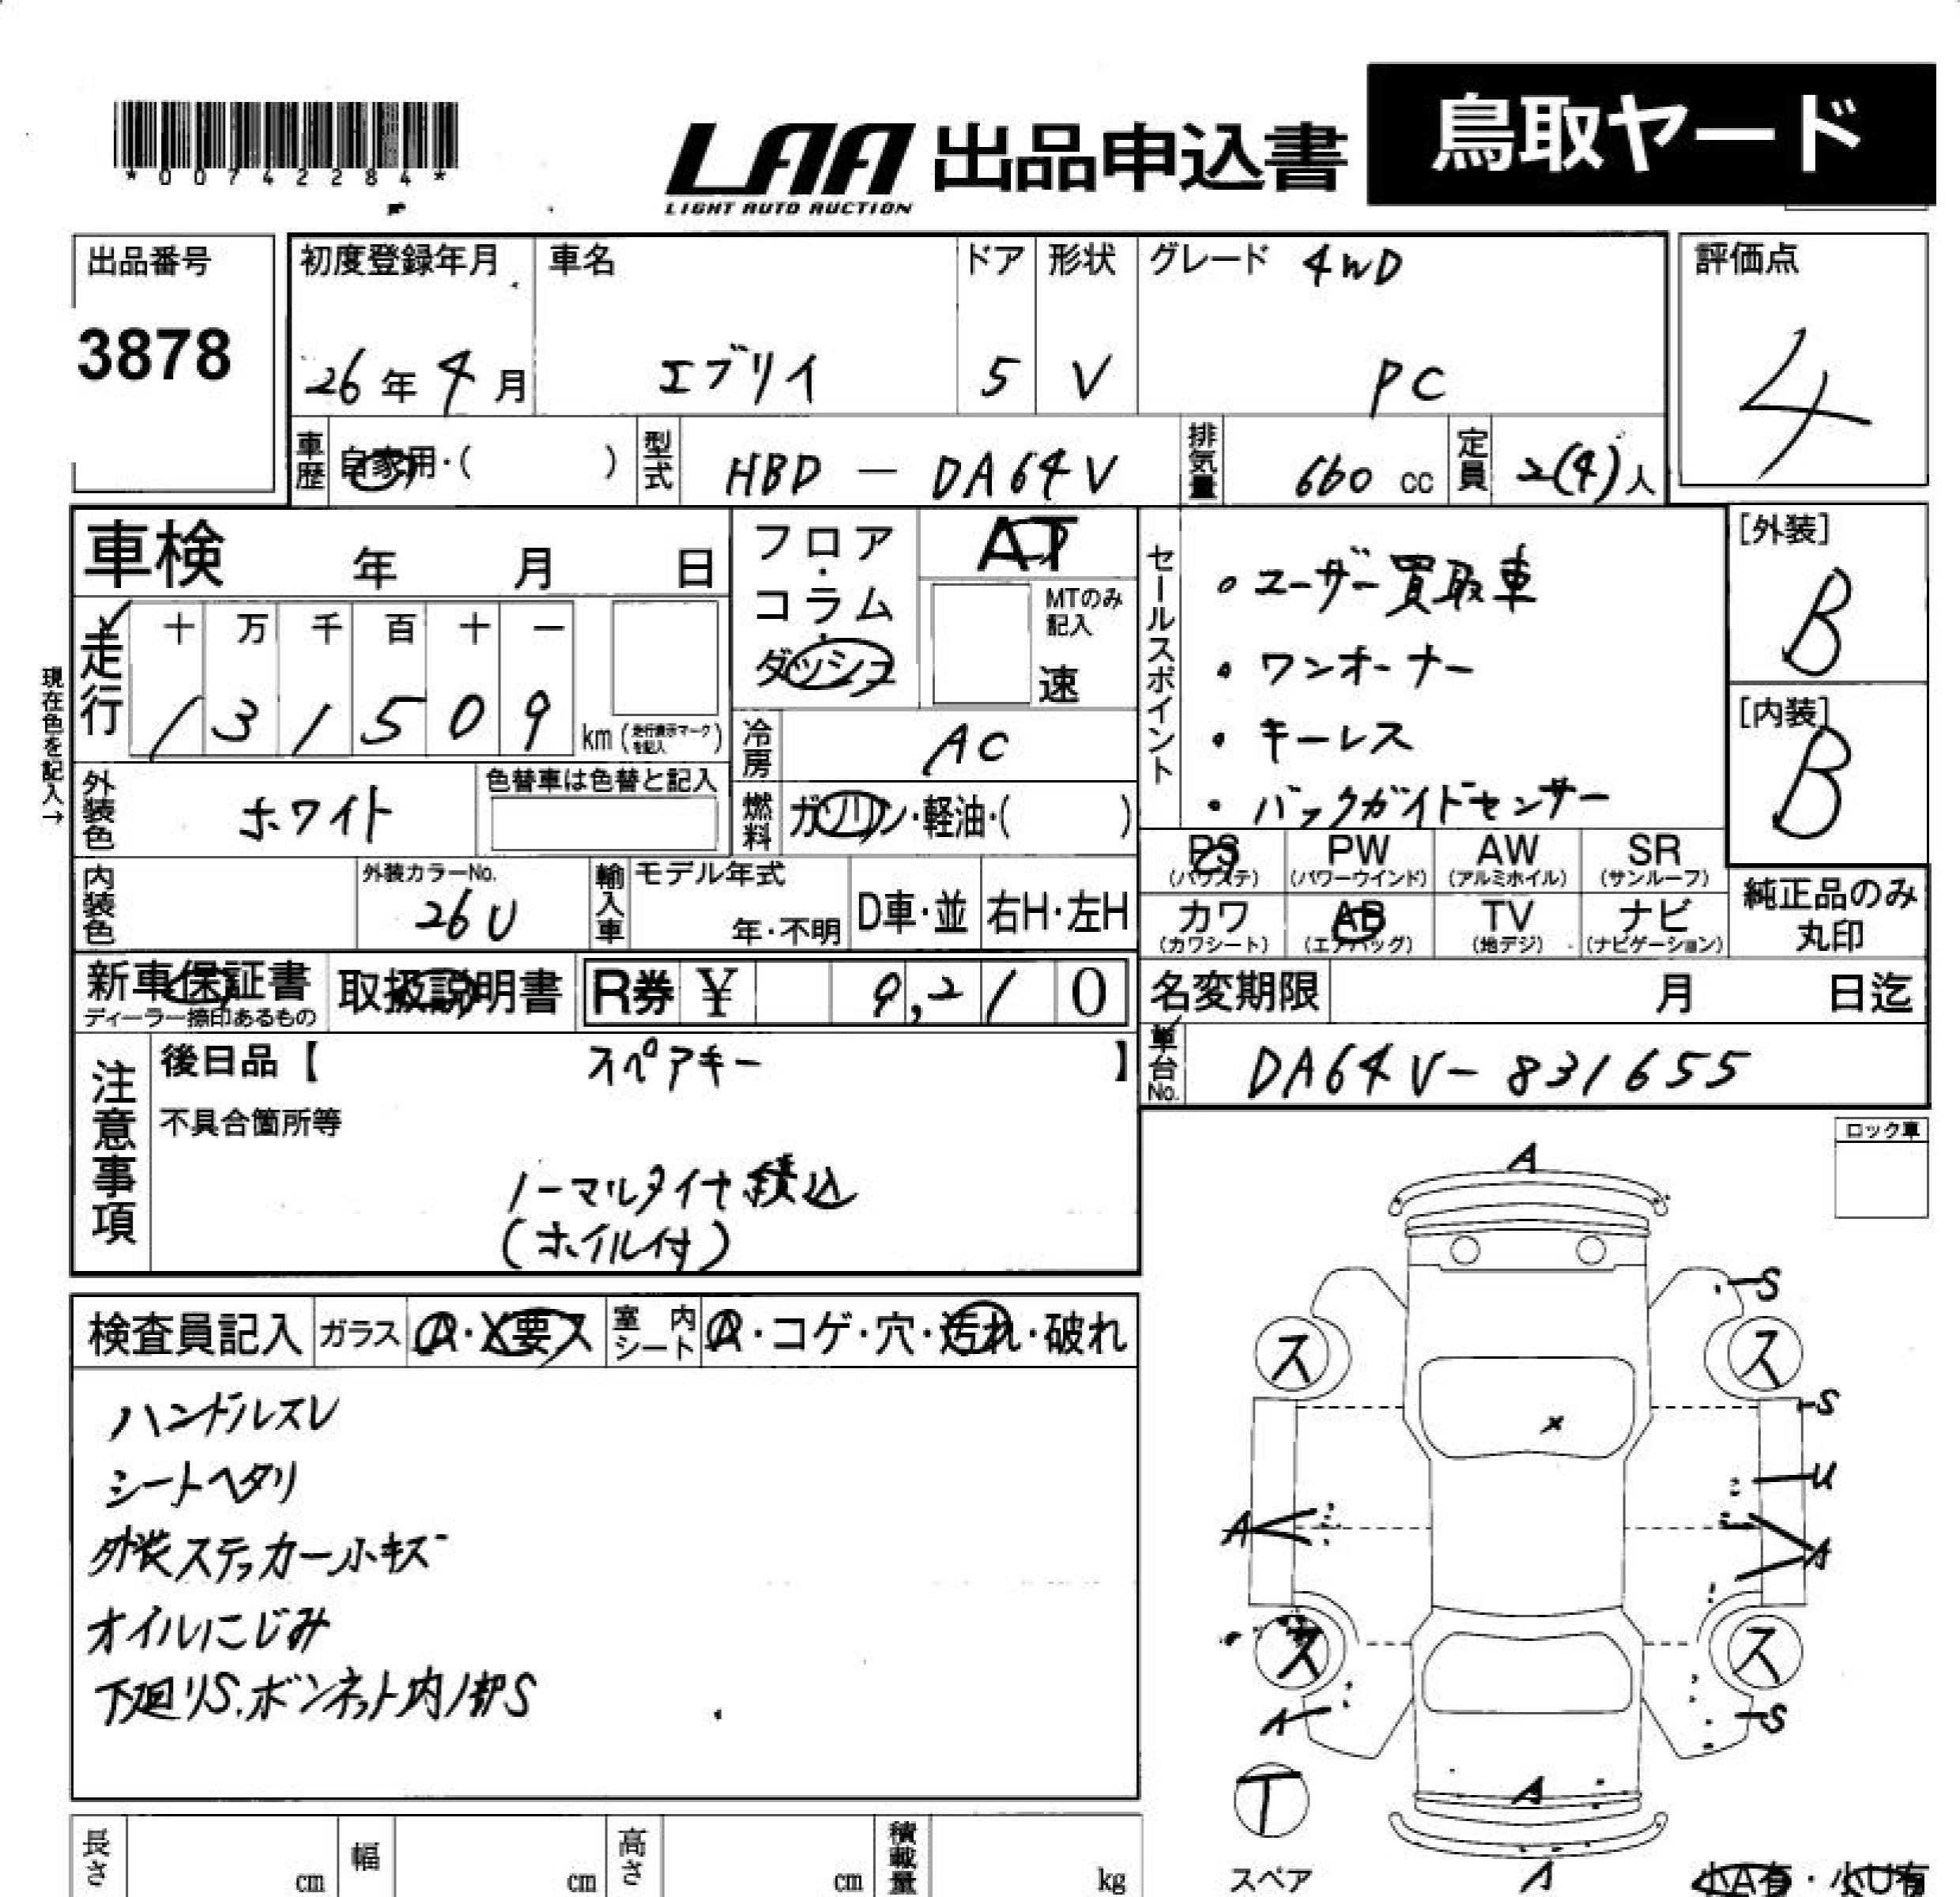 *00742284*
LAA 出品申込書 鳥取ヤード
LIGHT AUTO AUCTION
出品番号
3878
初度登録年月
26年4月
車名
エブリイ
ドア
5
形状
V
グレード 4WD
PC
評価点
4
車歴 自家用・( )
型式 HBD - DA64V
排気量 660 cc
定員 2(4)人
車検 年 月 日
フロア・コラム・ダッシュ
AT
MTのみ記入
速
セールスポイント
・ユーザー買取車
・ワンオーナー
・キーレス
・バックガイドセンサー
[外装]
B
[内装]
B
現在色を記入→
走行
十 万 千 百 十 一
1 3 1 5 0 9 km (走行表示マークを記入)
冷房 AC
燃料 ガソリン・軽油・( )
外装色 ホワイト
色替車は色替と記入
PS (パワステ)
PW (パワーウインド)
AW (アルミホイル)
SR (サンルーフ)
カワ (カワシート)
AB (エアバッグ)
TV (地デジ)
ナビ (ナビゲーション)
純正品のみ丸印
内装色
外装カラーNo.
26U
輸入車
モデル年式
年・不明
D車・並
右H・左H
新車保証書
ディーラー捺印あるもの
取扱説明書
R券 ¥ 9,210
名変期限 月 日迄
車台No. DA64V-831655
注意事項
後日品【 スペアキー 】
不具合箇所等
ノーマルタイヤ積込
(ホイル付)
ロック車
検査員記入
ガラス A・X要ス
室内シート A・コゲ・穴・汚れ・破れ
ハンドルスレ
シートヘタリ
外装ステッカー小キズ
オイルにじみ
下廻りS.ボンネット内ノ部S
A
S
ス ス
S
X
U
A A
ス ス
A S
T
A
スペア
A
小A有・小U有
長さ cm
幅 cm
高さ cm
積載量 kg